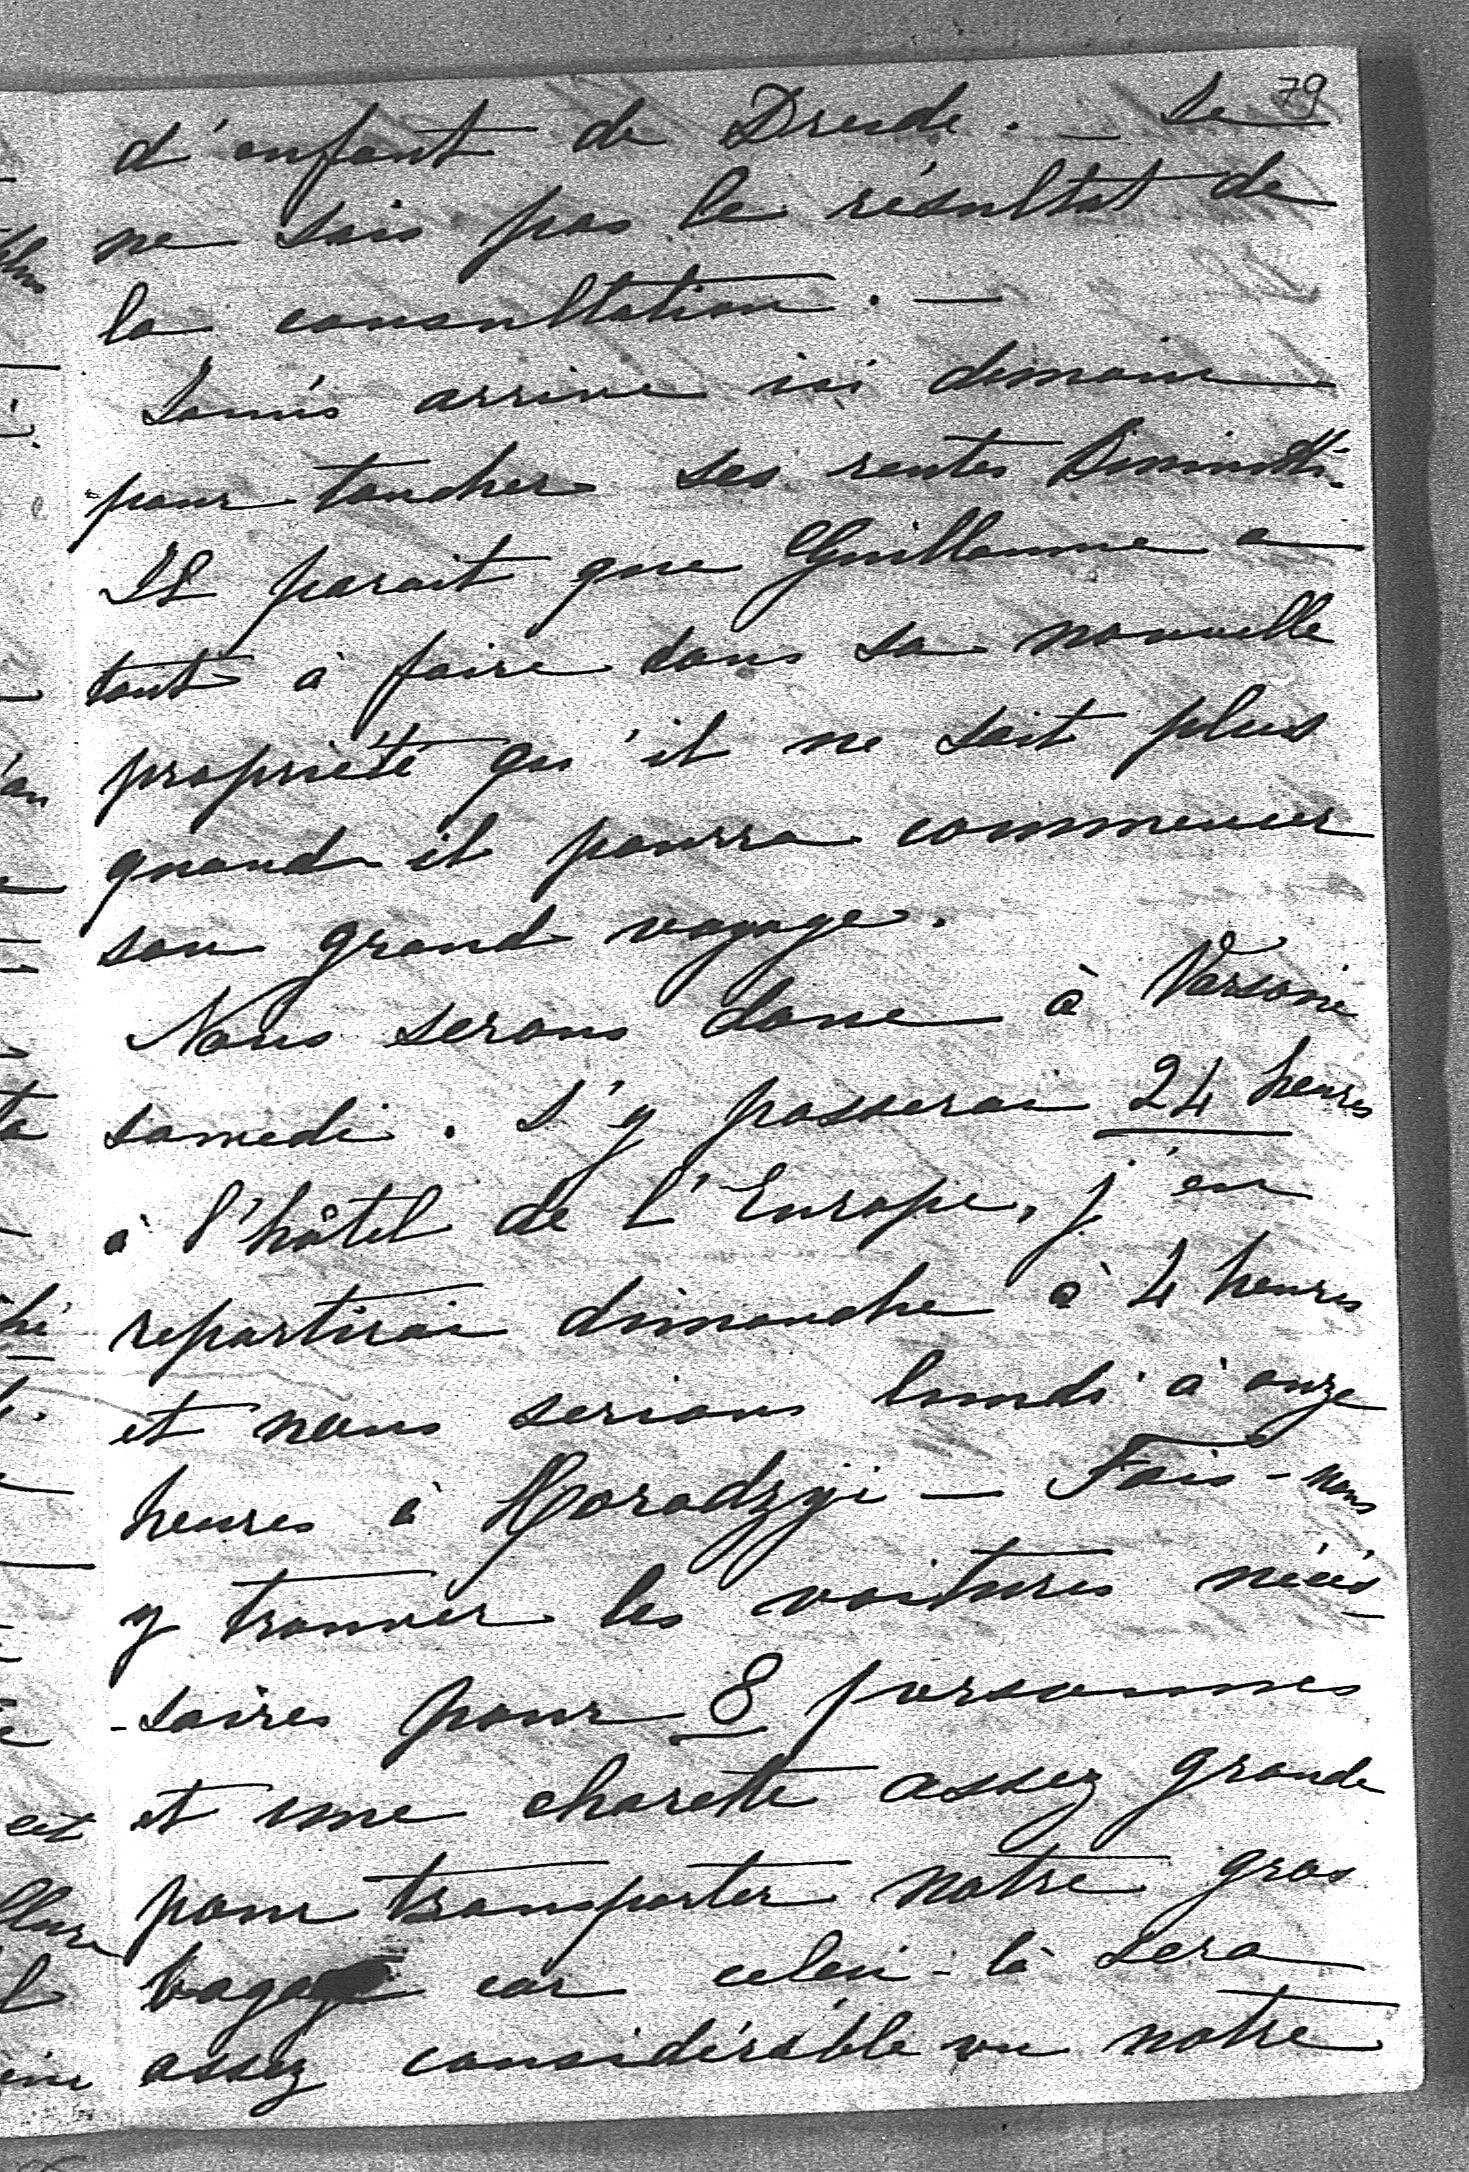 79
d'enfant de Dresde. — Je
ne sais pas le résultat de
la consultation. —
Louis arrive ici demain
pour toucher ses rentes
Il parait que Guillaume a
tant à faire dans sa nouvelle
propriété qu'il ne sait plus
quand il pourra commencer
son grand voyage.
Nous serons donc à Varsovie
samedi. J'y passerai 24 heures
à l'hôtel de l'Europe, j'en
repartirai dimanche à 4 heures
et nous serions lundi à onze
heures à Horodzyi — Fais-nous
y trouver les voitures néces-
-saires pour 8 personnes
et une charette assez grande
pour transporter notre gros
bagage car celui-là sera
assez considérable vu notre